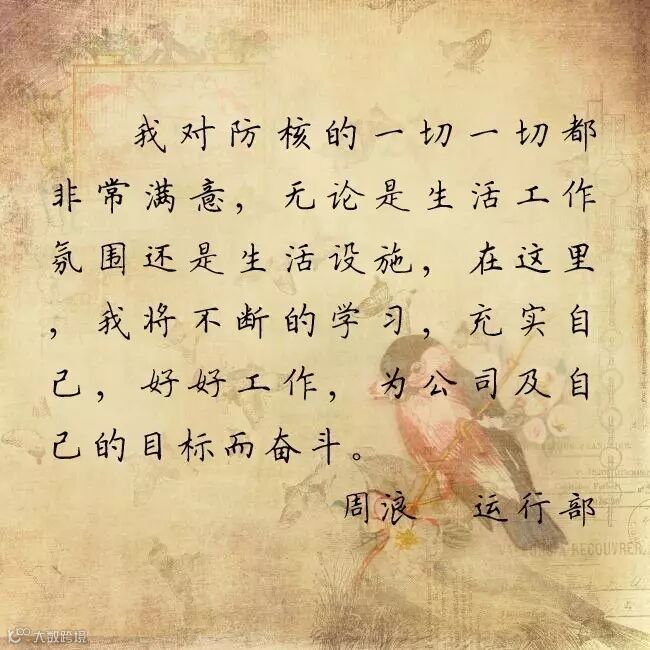 我对防核的一切一切都
非常满意，无论是生活工作
氛围还是生活设施，在这里
，我将不断的学习，充实自
己，好好工作，为公司及自
己的目标而奋斗。
周浪 运行部
RECOUVRER
大数跨境